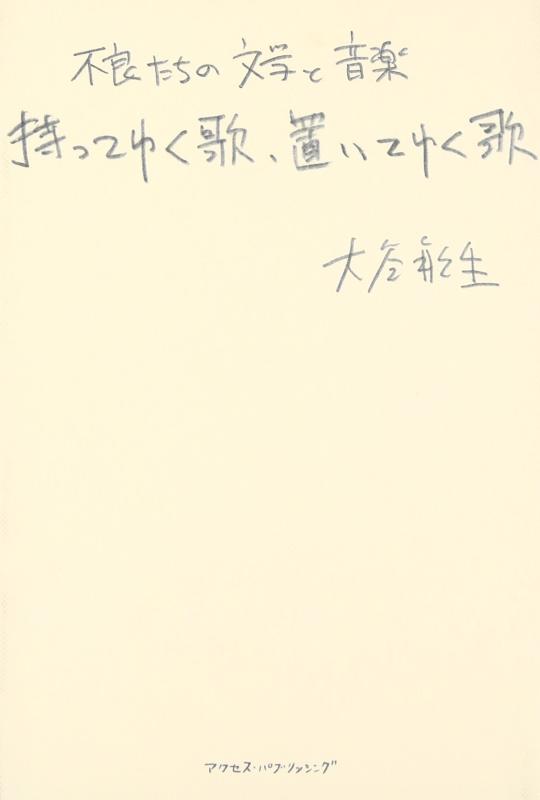 不良たちの文学と音楽
持ってゆく歌、置いてゆく歌
大谷能生
アクセス・パブリッシング